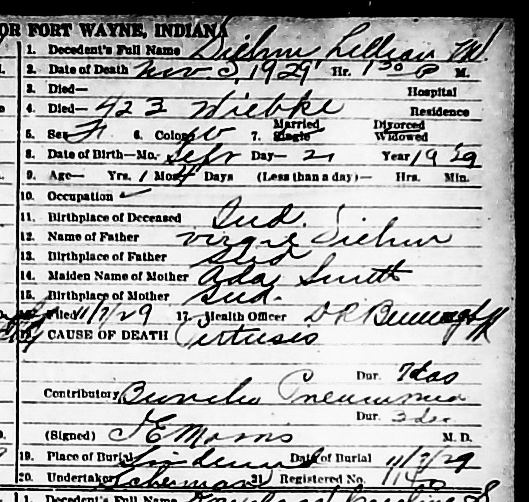 OR FORT WAYNE, INDIANA
1. Decedent's Full Name Diehm Lillian M.
2. Date of Death Nov 5, 1929 Hr. 1 30 P M.
3. Died— Hospital
4. Died— 423 Wiebke Residence
5. Sex F 6. Color W 7. Married Single Divorced Widowed
8. Date of Birth—Mo. Sept Day— 21 Year 1929
9. Age— Yrs. 1 Mos 4 Days (Less than a day)— Hrs. Min.
10. Occupation ✓
11. Birthplace of Deceased Ind.
12. Name of Father Virgil Diehm
13. Birthplace of Father Ind
14. Maiden Name of Mother Ada Smith
15. Birthplace of Mother Ind.
16. Filed 11/7/29 17. Health Officer D R
18. CAUSE OF DEATH Pertussis
Dur. 7 das
Contributory Broncho Pneumonia
Dur. 3 das
(Signed) J E Morris M. D.
19. Place of Burial Lindenwood Date of Burial 11/7/29
20. Undertaker Scherman 21 Registered No.
1. Decedent's Full Name